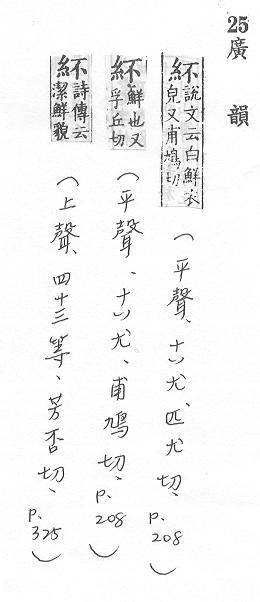 25
廣韻
紑說文云白鮮衣
皃又甫鳩切
(平聲、十八尤、匹尤切、p.208)
紑鮮也又
孚丘切
(平聲、十八尤、甫鳩切、p.208)
紑詩傳云
潔鮮貌
(上聲、四十三等、芳否切、p.325)